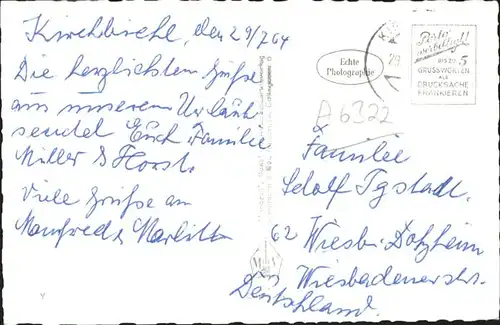 Kirchbichl, den 29/7 64
Die herzlichsten Grüße
aus unserem Urlaub
sendet Euch Familie
Müller & Horst.
Viele Grüße an
Manfred &
Echte
Photographie
29
Porto
BIS ZU 5
GRUSSWORTEN
ALS
DRUCKSACHE
FRANKIEREN
A6322
Familie
Adolf Igstadt.
62 Wiesb. Dotzheim
Wiesbadenerstr.
Deutschland.